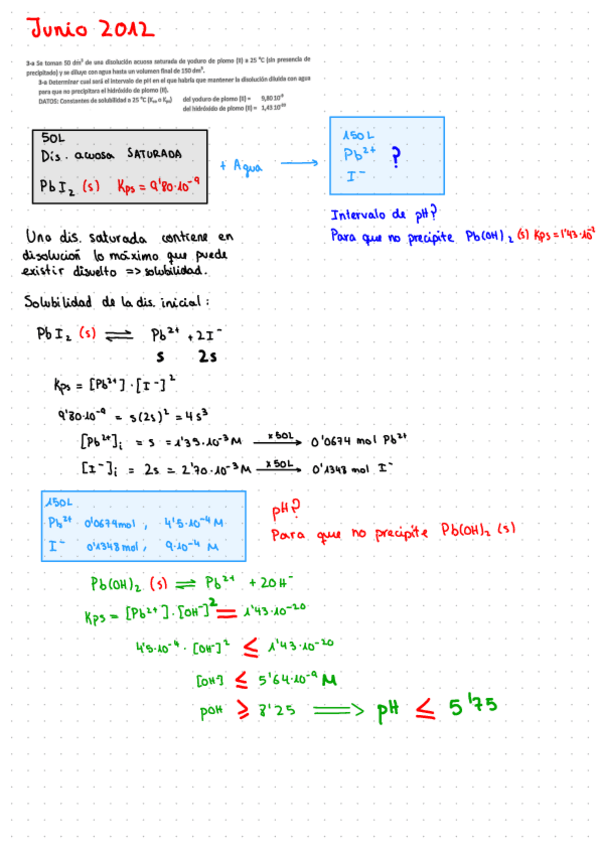 Junio 2012
3-a Se toman 50 dm³ de una disolución acuosa saturada de yoduro de plomo (II) a 25 ºC (sin presencia de
precipitado) y se diluye con agua hasta un volumen final de 150 dm³.
3-a Determinar cual será el intervalo de pH en el que habría que mantener la disolución diluida con agua
para que no precipitara el hidróxido de plomo (II).
DATOS: Constantes de solubilidad a 25 ºC (Kₛₒ o Kₚₛ) del yoduro de plomo (II) = 9,80 10⁻⁹
del hidróxido de plomo (II) = 1,43 10⁻²⁰
50L
Dis. acuosa SATURADA
PbI₂ (s) Kps = 9'80·10⁻⁹
+ Agua
150L
Pb²⁺ ?
I⁻
Intervalo de pH?
Para que no precipite Pb(OH)₂ (s) Kps = 1'43·10⁻²
Una dis. saturada contiene en
disolución lo máximo que puede
existir disuelto => solubilidad.
Solubilidad de la dis. inicial:
PbI₂ (s) ⇌ Pb²⁺ + 2I⁻
s 2s
Kps = [Pb²⁺]·[I⁻]²
9'80·10⁻⁹ = s(2s)² = 4s³
[Pb²⁺]ᵢ = s = 1'35·10⁻³ M —x50L→ 0'0674 mol Pb²⁺
[I⁻]ᵢ = 2s = 2'70·10⁻³ M —x50L→ 0'1348 mol I⁻
150L
Pb²⁺ 0'0674mol, 4'5·10⁻⁴ M
I⁻ 0'1348mol, 9·10⁻⁴ M
pH?
Para que no precipite Pb(OH)₂ (s)
Pb(OH)₂ (s) ⇌ Pb²⁺ + 2OH⁻
Kps = [Pb²⁺]·[OH⁻]² = 1'43·10⁻²⁰
4'5·10⁻⁴·[OH⁻]² ≤ 1'43·10⁻²⁰
[OH⁻] ≤ 5'64·10⁻⁹ M
pOH ≥ 8'25 ⟹ pH ≤ 5'75